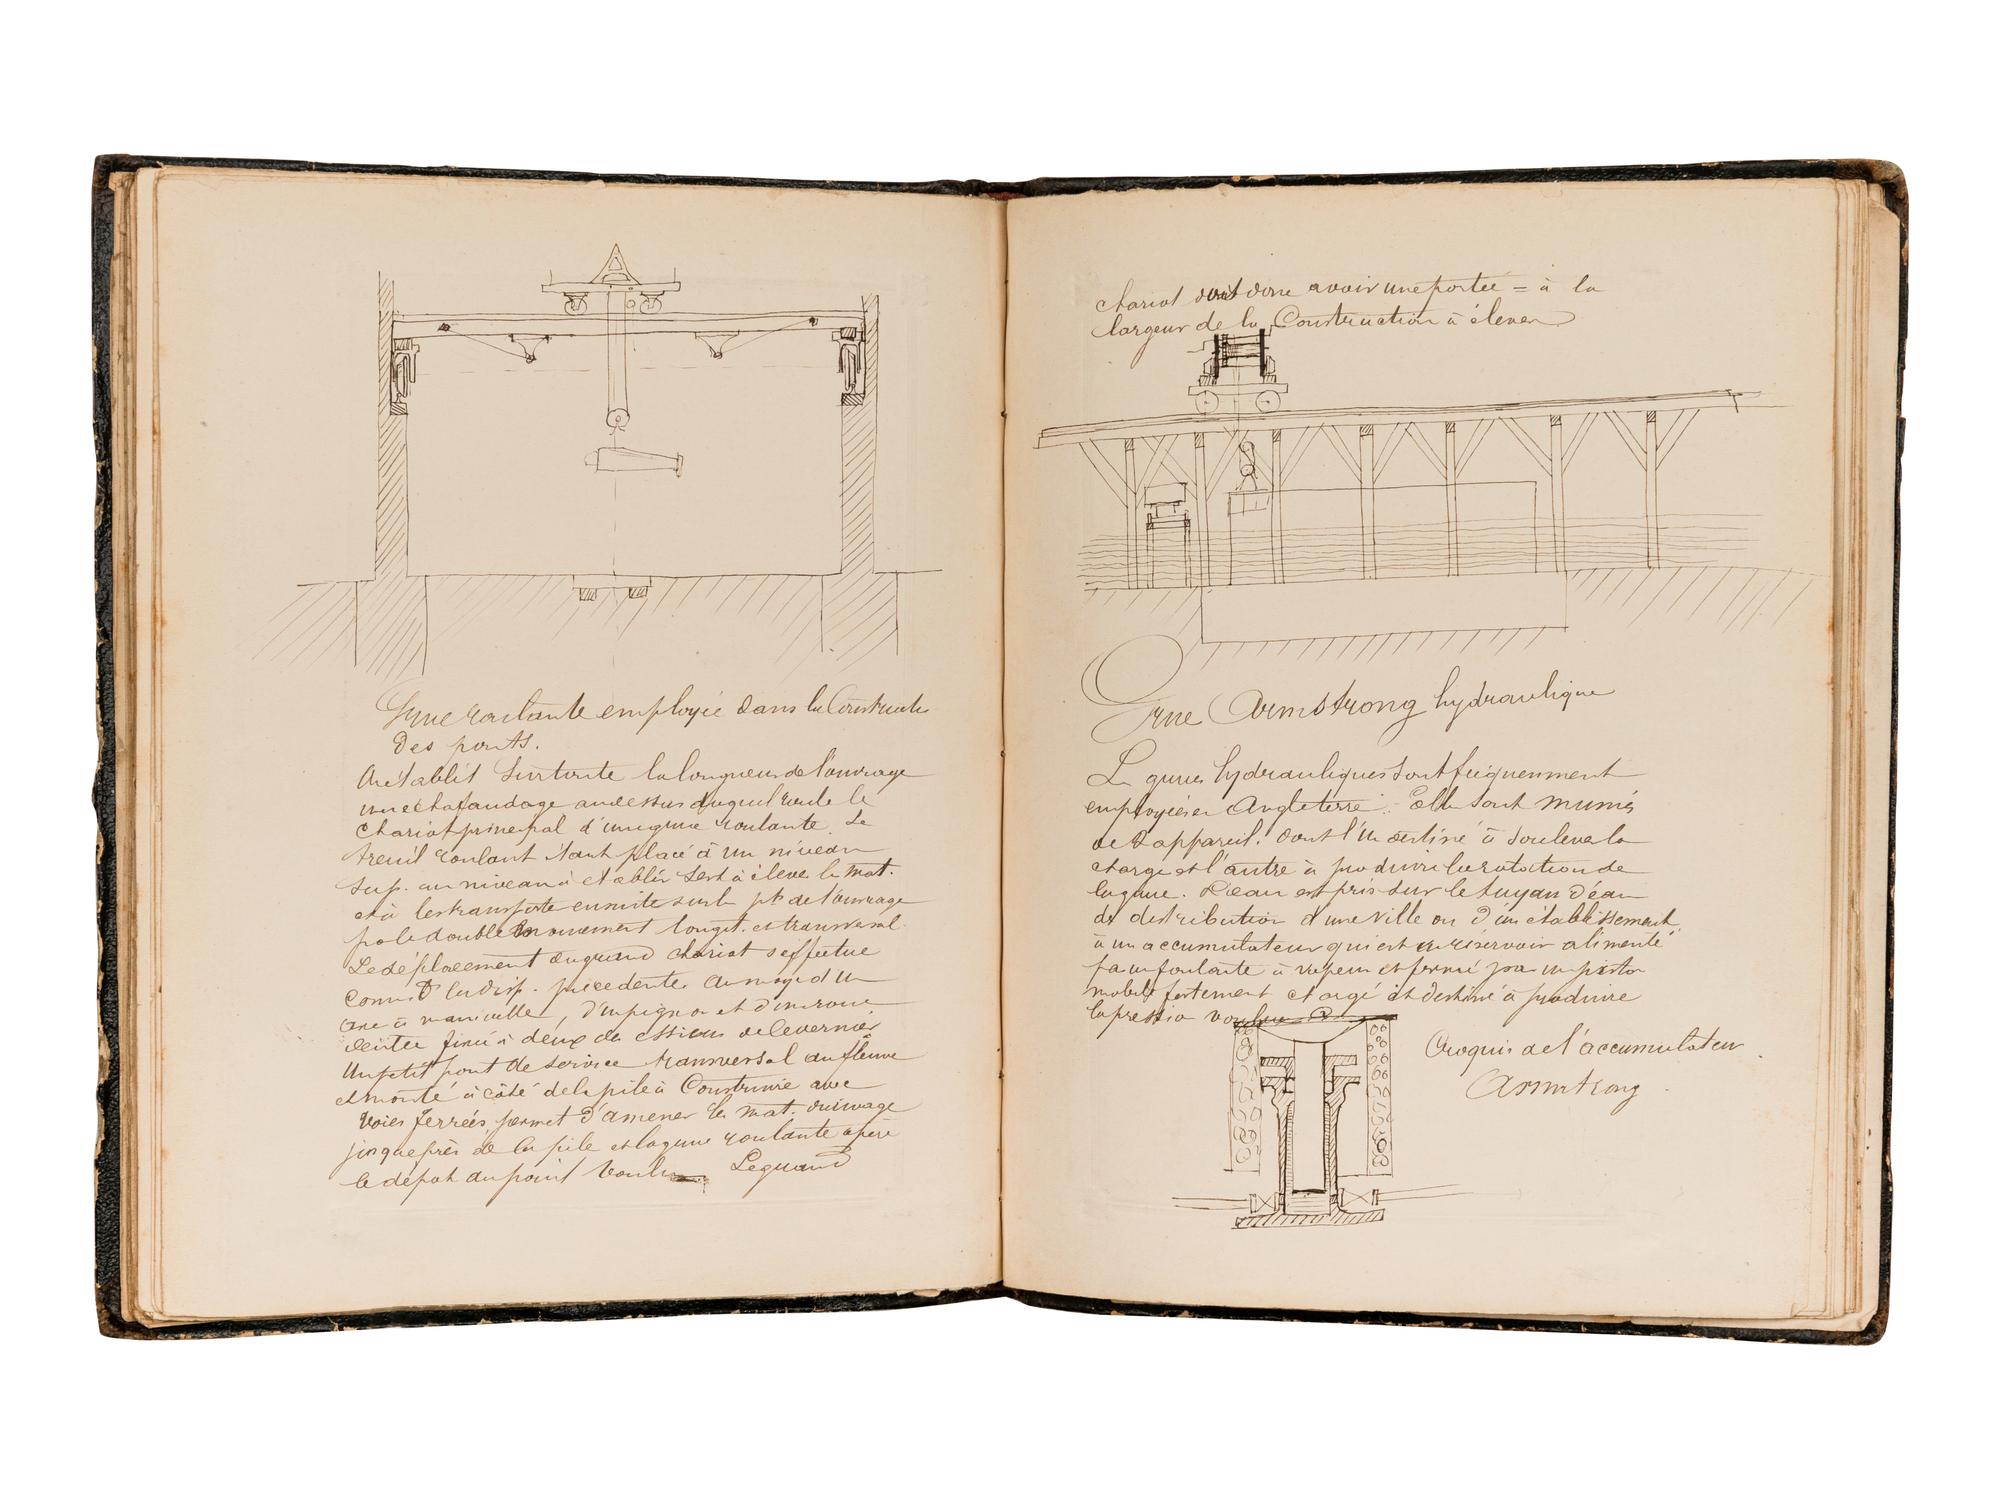 Grue roulante employée dans la Constructi
des ponts.
On établit Sur toute la longueur de l'ouvrage
un echafaudage audessus duquel roule le
chariot principal d'une grue roulante. Le
treuil roulant étant placé à un niveau
Sup. au niveau à établir sert à élever le mat.
et à les transporte ensuite sur le pt de l'ouvrage
par le double mouvement longit. et transversal.
Le déplacement du grand chariot s'effectue
comme la disp. précédente au moyen d'un
axe à manivelle, d'un pignon et d'une roue
dentée fixée à deux des essieux de le vernier
Un petit pont de service transversal au fleuve
et monté à côté de la pile à Construire avec
voies ferrées permet d'amener le mat. du rivage
jusque près de la pile et la grue roulante opère
le dépot au point voulu Le grand
chariot doit donc avoir une portée = à la
largeur de la Construction à élever
Grue Armstrong hydraulique
Le grues hydrauliques sont fréquemment
employées en Angleterre. Elle sont munies
de 2 appareil. dont l'un destiné à soulever la
charge et l'autre à produire la rotation de
la grue. L'eau est pris sur le tuyau d'eau
de distribution d'une ville ou d'un établissement
à un accumulateur qui est un réservoir alimenté
pa un foulante à vapeur et fermé par un piston
mobile fortement chargé et destiné à produire
la pression voulue
Croquis de l'accumulateur
Armstrong